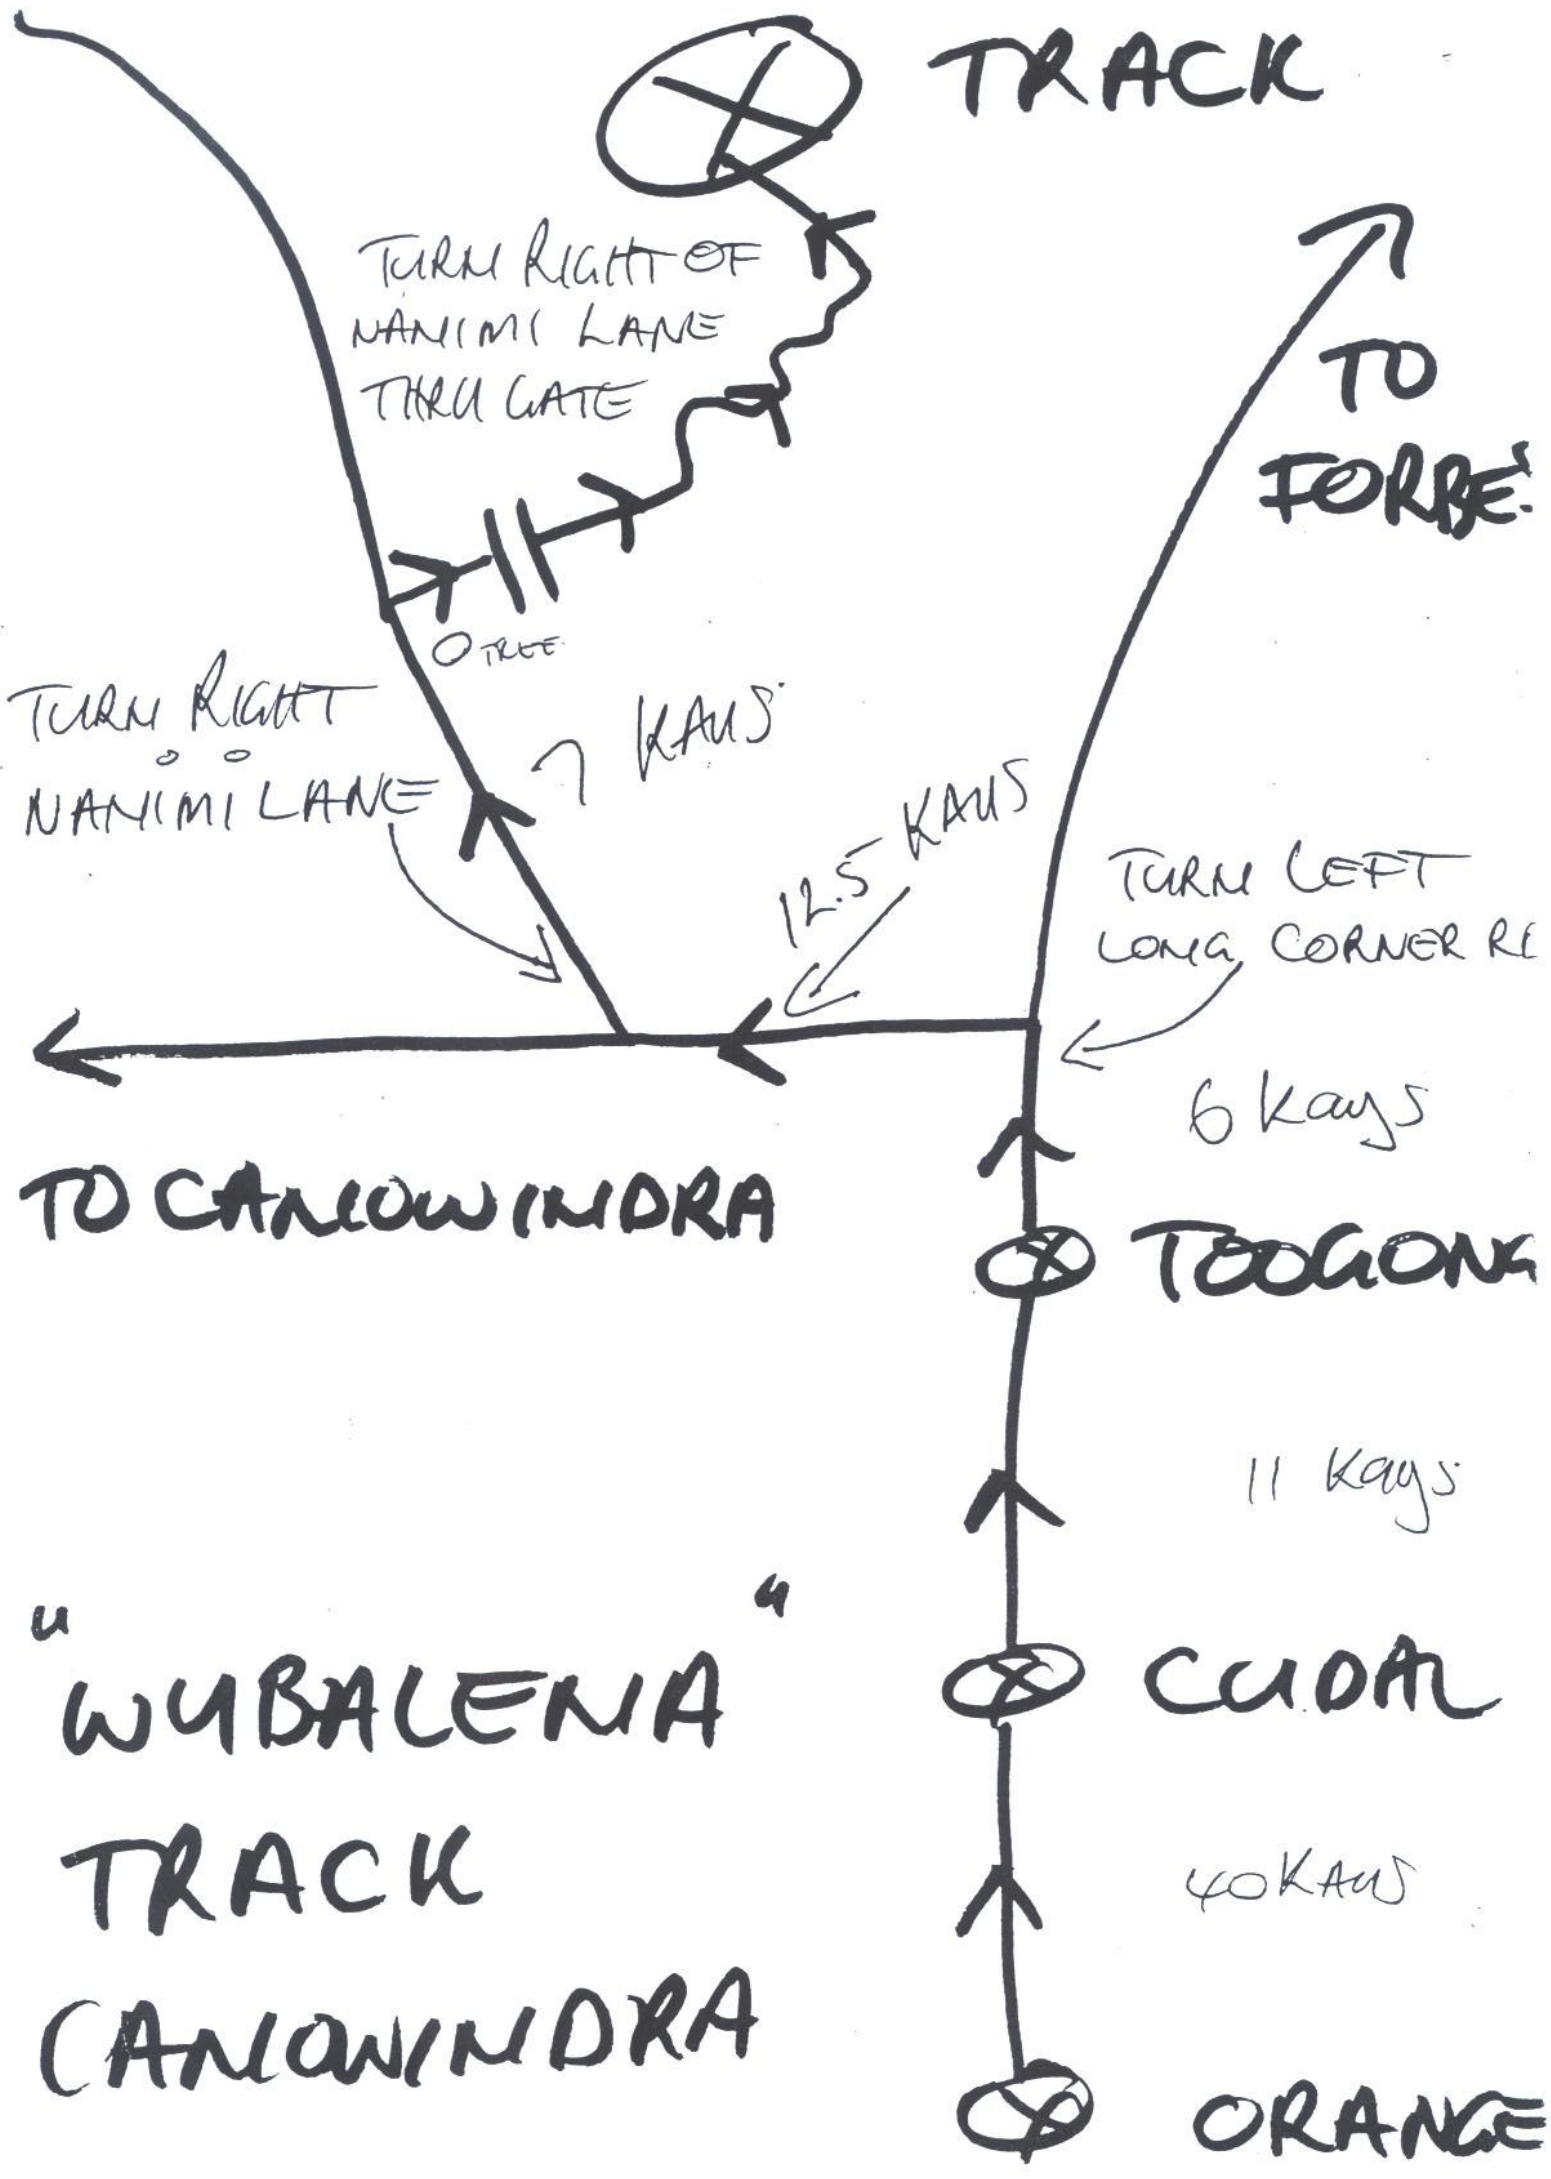 TRACK
TURN RIGHT OF
NANIMI LANE
THRU GATE
TO
FORBES
TREE
TURN RIGHT
NANIMI LANE
7 KAYS
12.5 KAYS
TURN LEFT
LONG CORNER RD
6 Kays
TO CANOWINDRA
TOOGONG
11 Kays
"WUBALENA"
TRACK
CANOWINDRA
CUDAL
40 KAYS
ORANGE